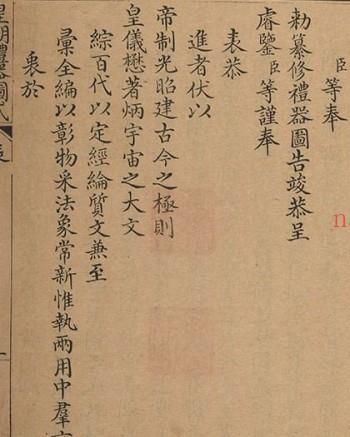 臣等奉
勅纂修禮器圖告竣恭呈
睿鑒臣等謹奉
表恭
進者伏以
帝制光昭建古今之極則
皇儀懋著炳宇宙之大文
綜百代以定經綸質文兼至
彙全編以彰物采法象常新惟執兩用中羣
衷於
皇朝禮器圖式
表
一